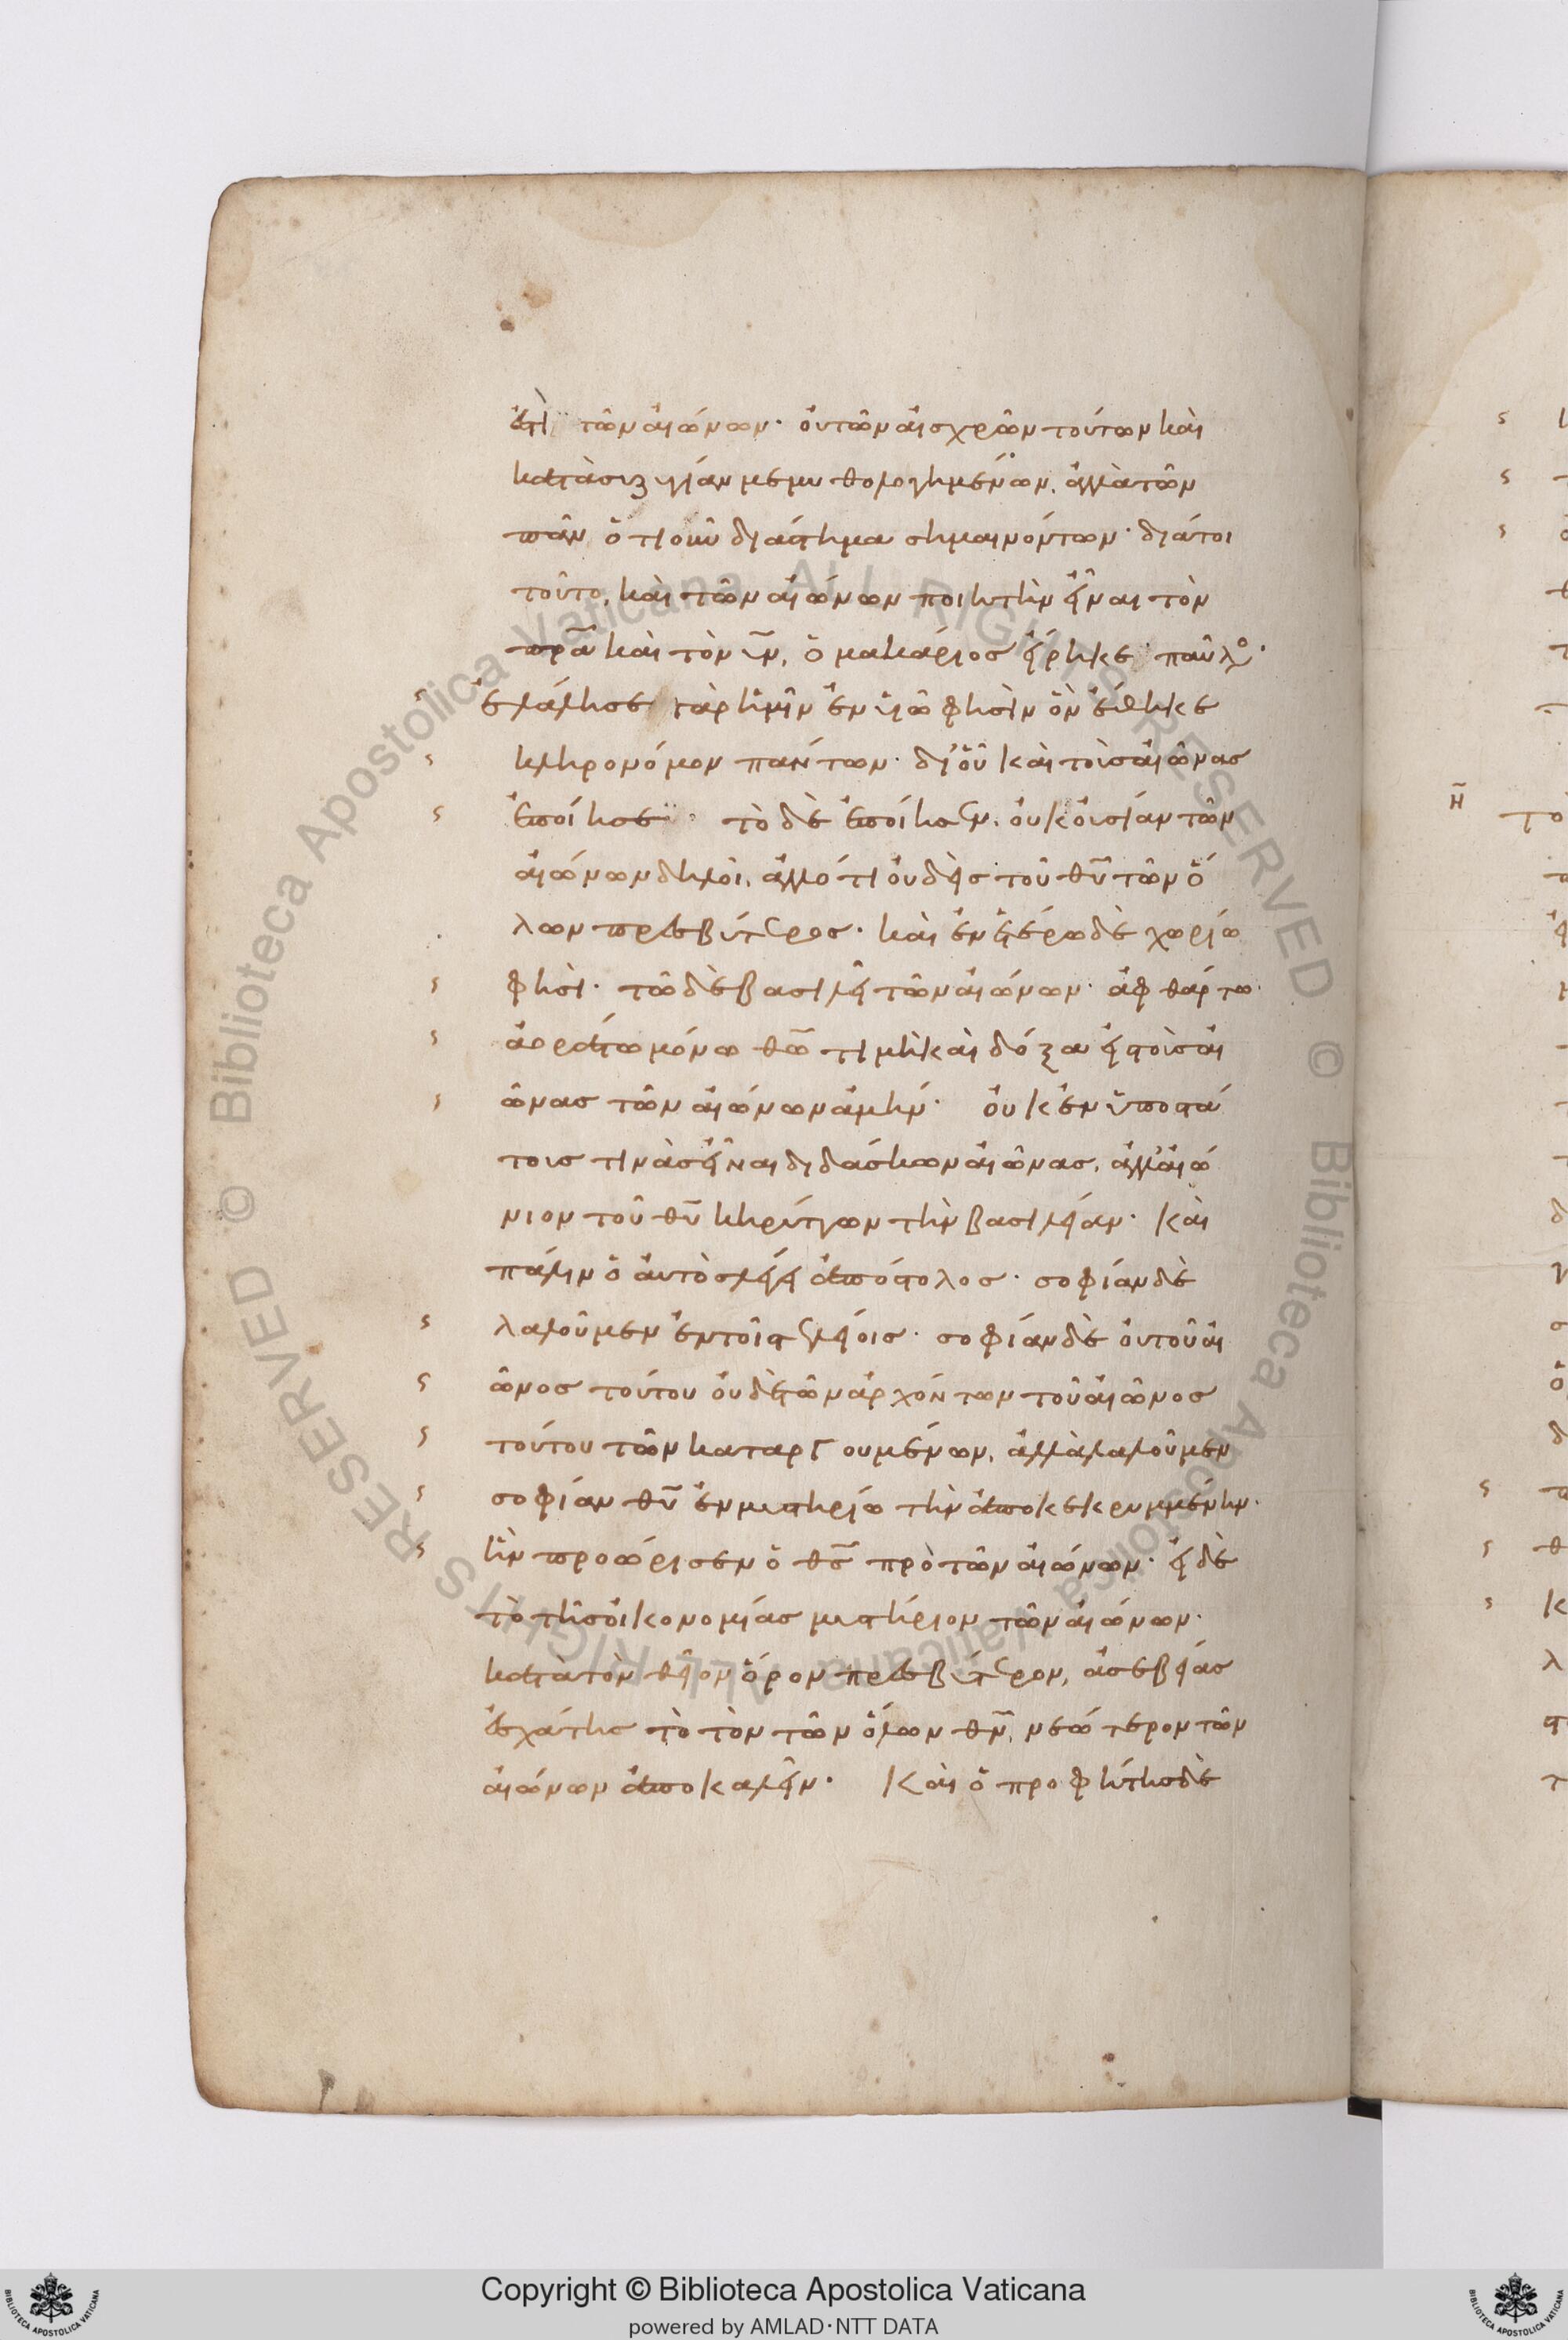 ἐστὶ τῶν αἰώνων· οὐ τῶν αἰσχρῶν τούτων καὶ
κατὰ συζυγίαν μεμυθολογημένων, ἀλλὰ τῶν
πᾶν ὁτιοῦν διάστημα σημαινόντων· διά τοι
τοῦτο, καὶ τῶν αἰώνων ποιητὴν εἶναι τὸν
πρᾶ καὶ τὸν υν, ὁ μακάριος εἴρηκε παῦλος·
ἐλάλησε γὰρ ἡμῖν ἐν υἱῶ φησὶν ὃν ἔθηκε
κληρονόμον πάντων· δι' οὗ καὶ τοὺς αἰῶνας
ἐποίησε· τὸ δὲ ἐποίησεν, οὐκ οὐσίαν τῶν
αἰώνων δηλοῖ, ἀλλ' ὅτι οὐδεὶς τοῦ θῦ τῶν ὅ
λων πρεσβύτερος· καὶ ἐν ἑτέρω δὲ χωρίω
φησὶ· τῶ δὲ βασιλεῖ τῶν αἰώνων· ἀφθάρτω·
ἀοράτω μόνω θῶ τιμὴ καὶ δόξα εἰς τοὺς αἰ
ῶνας τῶν αἰώνων ἀμήν· οὐκ ἐνυποστά
τους τινὰς εἶναι διδάσκων αἰῶνας, ἀλλ' αἰώ
νιον τοῦ θῦ κηρύττων τὴν βασιλείαν· καὶ
πάλιν ὁ αὐτὸς λέγει ἀπόστολος· σοφίαν δὲ
λαλοῦμεν ἐν τοῖς τελείοις· σοφίαν δὲ οὐ τοῦ αἰ
ῶνος τούτου οὐδὲ τῶν ἀρχόντων τοῦ αἰῶνος
τούτου τῶν καταργουμένων, ἀλλὰ λαλοῦμεν
σοφίαν θῦ ἐν μυστηρίω τὴν ἀποκεκρυμμένην·
ἣν προώρισεν ὁ θς πρὸ τῶν αἰώνων· εἰ δὲ
τὸ τῆς οἰκονομίας μυστήριον τῶν αἰώνων·
κατὰ τὸν θεῖον ὅρον πρεσβύτερον, ἀσεβείας
ἐσχάτης τὸ τὸν τῶν ὅλων θν, νεώτερον τῶν
αἰώνων ἀποκαλεῖν· Καὶ ὁ προφήτης δὲ
Copyright © Biblioteca Apostolica Vaticana
powered by AMLAD·NTT DATA